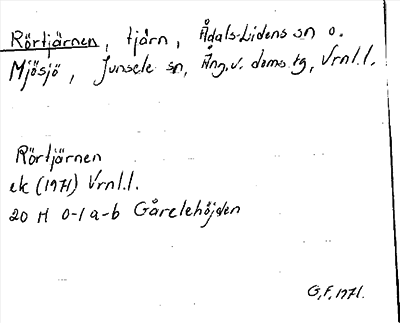 Rörtjärnen, tjärn, Ådals-Lidens sn o.
Mjösjö, Junsele sn, Ång.v. doms tg, Vrnl.l.
Rörtjärnen
ek (1971) Vrnl.l.
20 H 0-1 a-b Gårelehöjden
G.F. 1971.